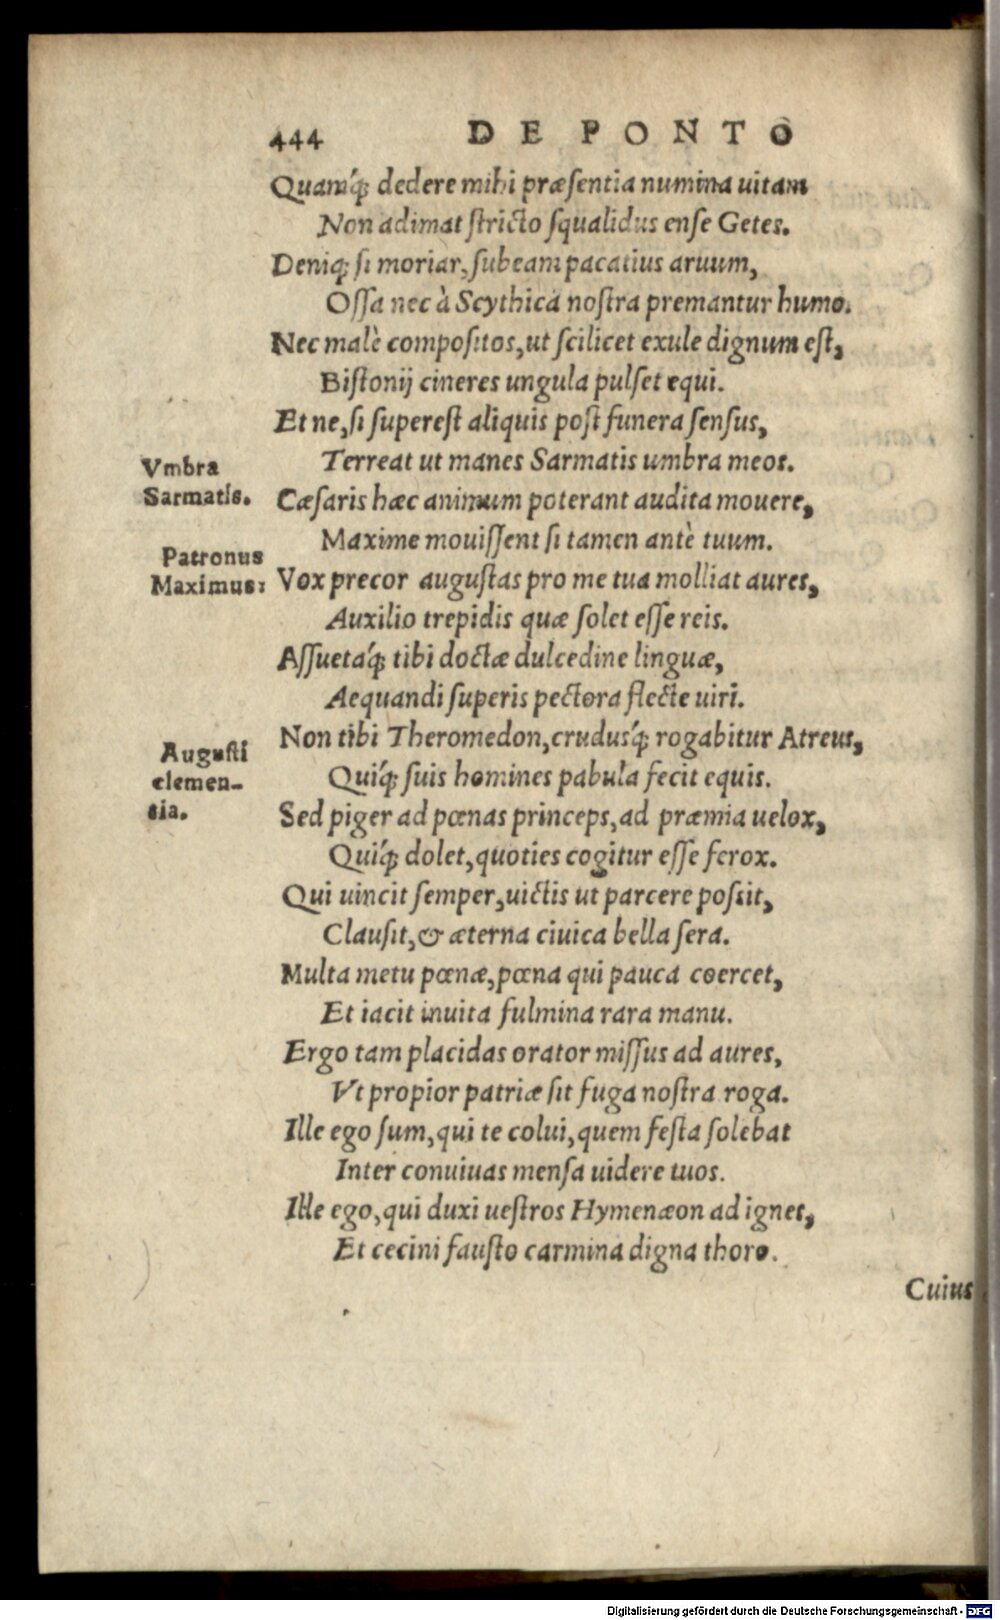 444 DE PONTO
Quamq́; dedere mihi præsentia numina uitam
Non adimat stricto squalidus ense Getes.
Deniq; si moriar, subeam pacatius aruum,
Ossa nec à Scythica nostra premantur humo.
Nec malè compositos, ut scilicet exule dignum est,
Bistonij cineres ungula pulset equi.
Et ne, si superest aliquis post funera sensus,
Terreat ut manes Sarmatis umbra meos.
Vmbra
Sarmatis.
Cæsaris hæc animum poterant audita mouere,
Maxime mouissent si tamen antè tuum.
Patronus
Maximus:
Vox precor augustas pro me tua molliat aures,
Auxilio trepidis quæ solet esse reis.
Assuetaq́; tibi doctæ dulcedine linguæ,
Aequandi superis pectora flecte uiri.
Non tibi Theromedon, crudusq́; rogabitur Atreus,
Augusti
clemen-
tia.
Quiq́; suis homines pabula fecit equis.
Sed piger ad pœnas princeps, ad præmia uelox,
Quiq́; dolet, quoties cogitur esse ferox.
Qui uincit semper, uictis ut parcere possit,
Clausit, & æterna ciuica bella sera.
Multa metu pœnæ, pœna qui pauca coercet,
Et iacit inuita fulmina rara manu.
Ergo tam placidas orator missus ad aures,
Vt propior patriæ sit fuga nostra roga.
Ille ego sum, qui te colui, quem festa solebat
Inter conuiuas mensa uidere tuos.
Ille ego, qui duxi uestros Hymenæon ad ignes,
Et cecini fausto carmina digna thoro.
Cuius
Digitalisierung gefördert durch die Deutsche Forschungsgemeinschaft - DFG